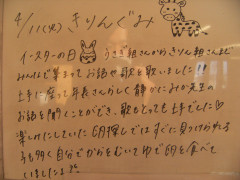 4/11(火) きりんぐみ
イースターの日 うさぎ組さんからきりん組さんまで
みんなで集まってお話や歌を歌いました!!
上手に座って年長さんらしく静かにみゆき先生の
お話を聞くことができ、歌もとっても上手でした♡
楽しみにしていた卵探しではすぐに見つけわかる
子も多く自分でからをむいてゆで卵を食べて
いましたよ